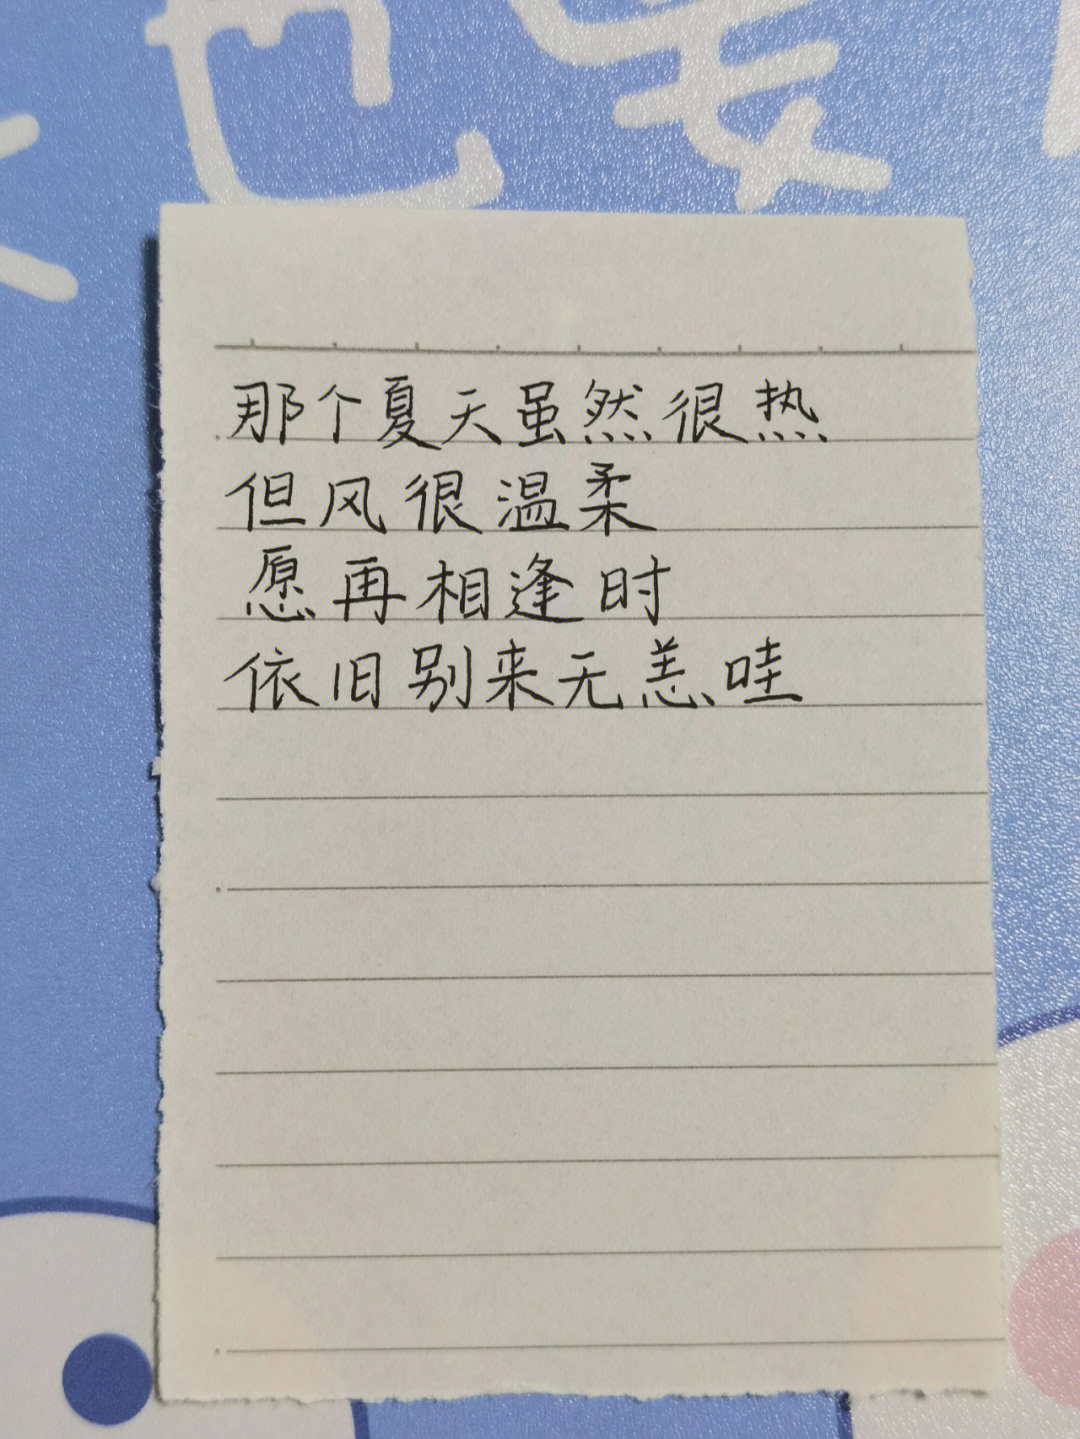 那个夏天虽然很热
但风很温柔
愿再相逢时
依旧别来无恙哇